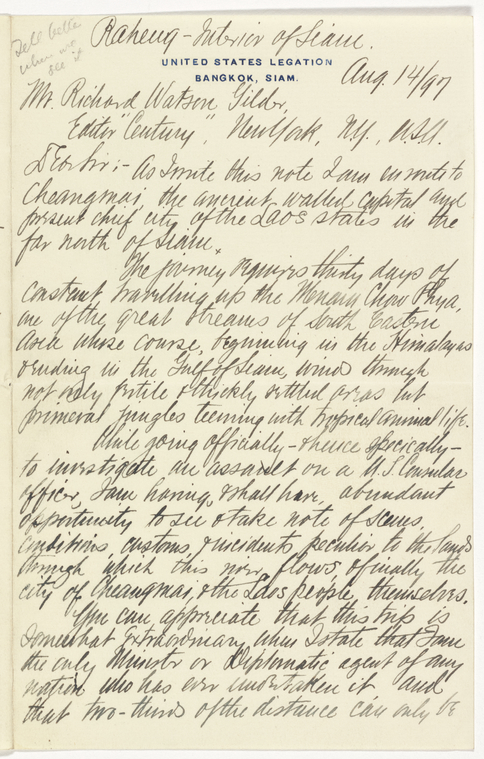 Raheng - Interior of Siam.
Defer better
when we
see it
UNITED STATES LEGATION
BANGKOK, SIAM.
Aug. 14/97
Mr. Richard Watson Gilder,
Editor "Century", New York, N.Y., U.S.A.
Dear Sir:- As I write this note I am en route to
Cheangmai, the ancient walled capital and
present chief city of the Laos states in the
far north of Siam.
The journey requires thirty days of
constant travelling up the Menam Chow Phya,
one of the great streams of South Eastern
Asia whose course, beginning in the Himalayas
& ending in the Gulf of Siam, winds through
not only fertile & thickly settled areas but
primeval jungles teeming with tropical animal life.
While going officially - & hence specially -
to investigate an assault on a U.S. Consular
officer, I am having, & shall have, abundant
opportunity to see & take note of scenes,
conditions, customs, & incidents peculiar to the lands
through which this river flows & finally the
city of Cheangmai, & the Laos people, themselves.
You can appreciate that this trip is
somewhat extraordinary when I state that I am
the only Minister or Diplomatic agent of any
nation who has ever undertaken it and
that two-thirds of the distance can only be